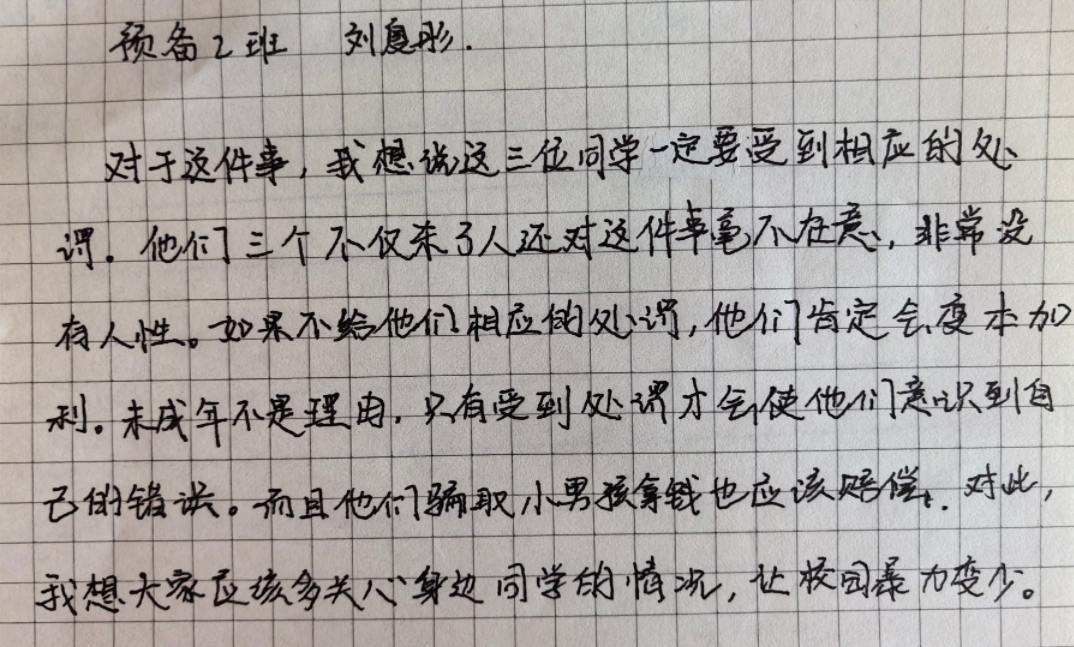 预备2班 刘夏彤.
对于这件事,我想说这三位同学一定要受到相应的处
罚.他们三个不仅杀了人还对这件事毫不在意,非常没
有人性。如果不给他们相应的处罚,他们肯定会变本加
利。未成年不是理由.只有受到处罚才会使他们意识到自
己的错误。而且他们骗取小男孩拿钱也应该赔偿.对此,
我想大家应该多关心身边同学的情况,让校园暴力变少。